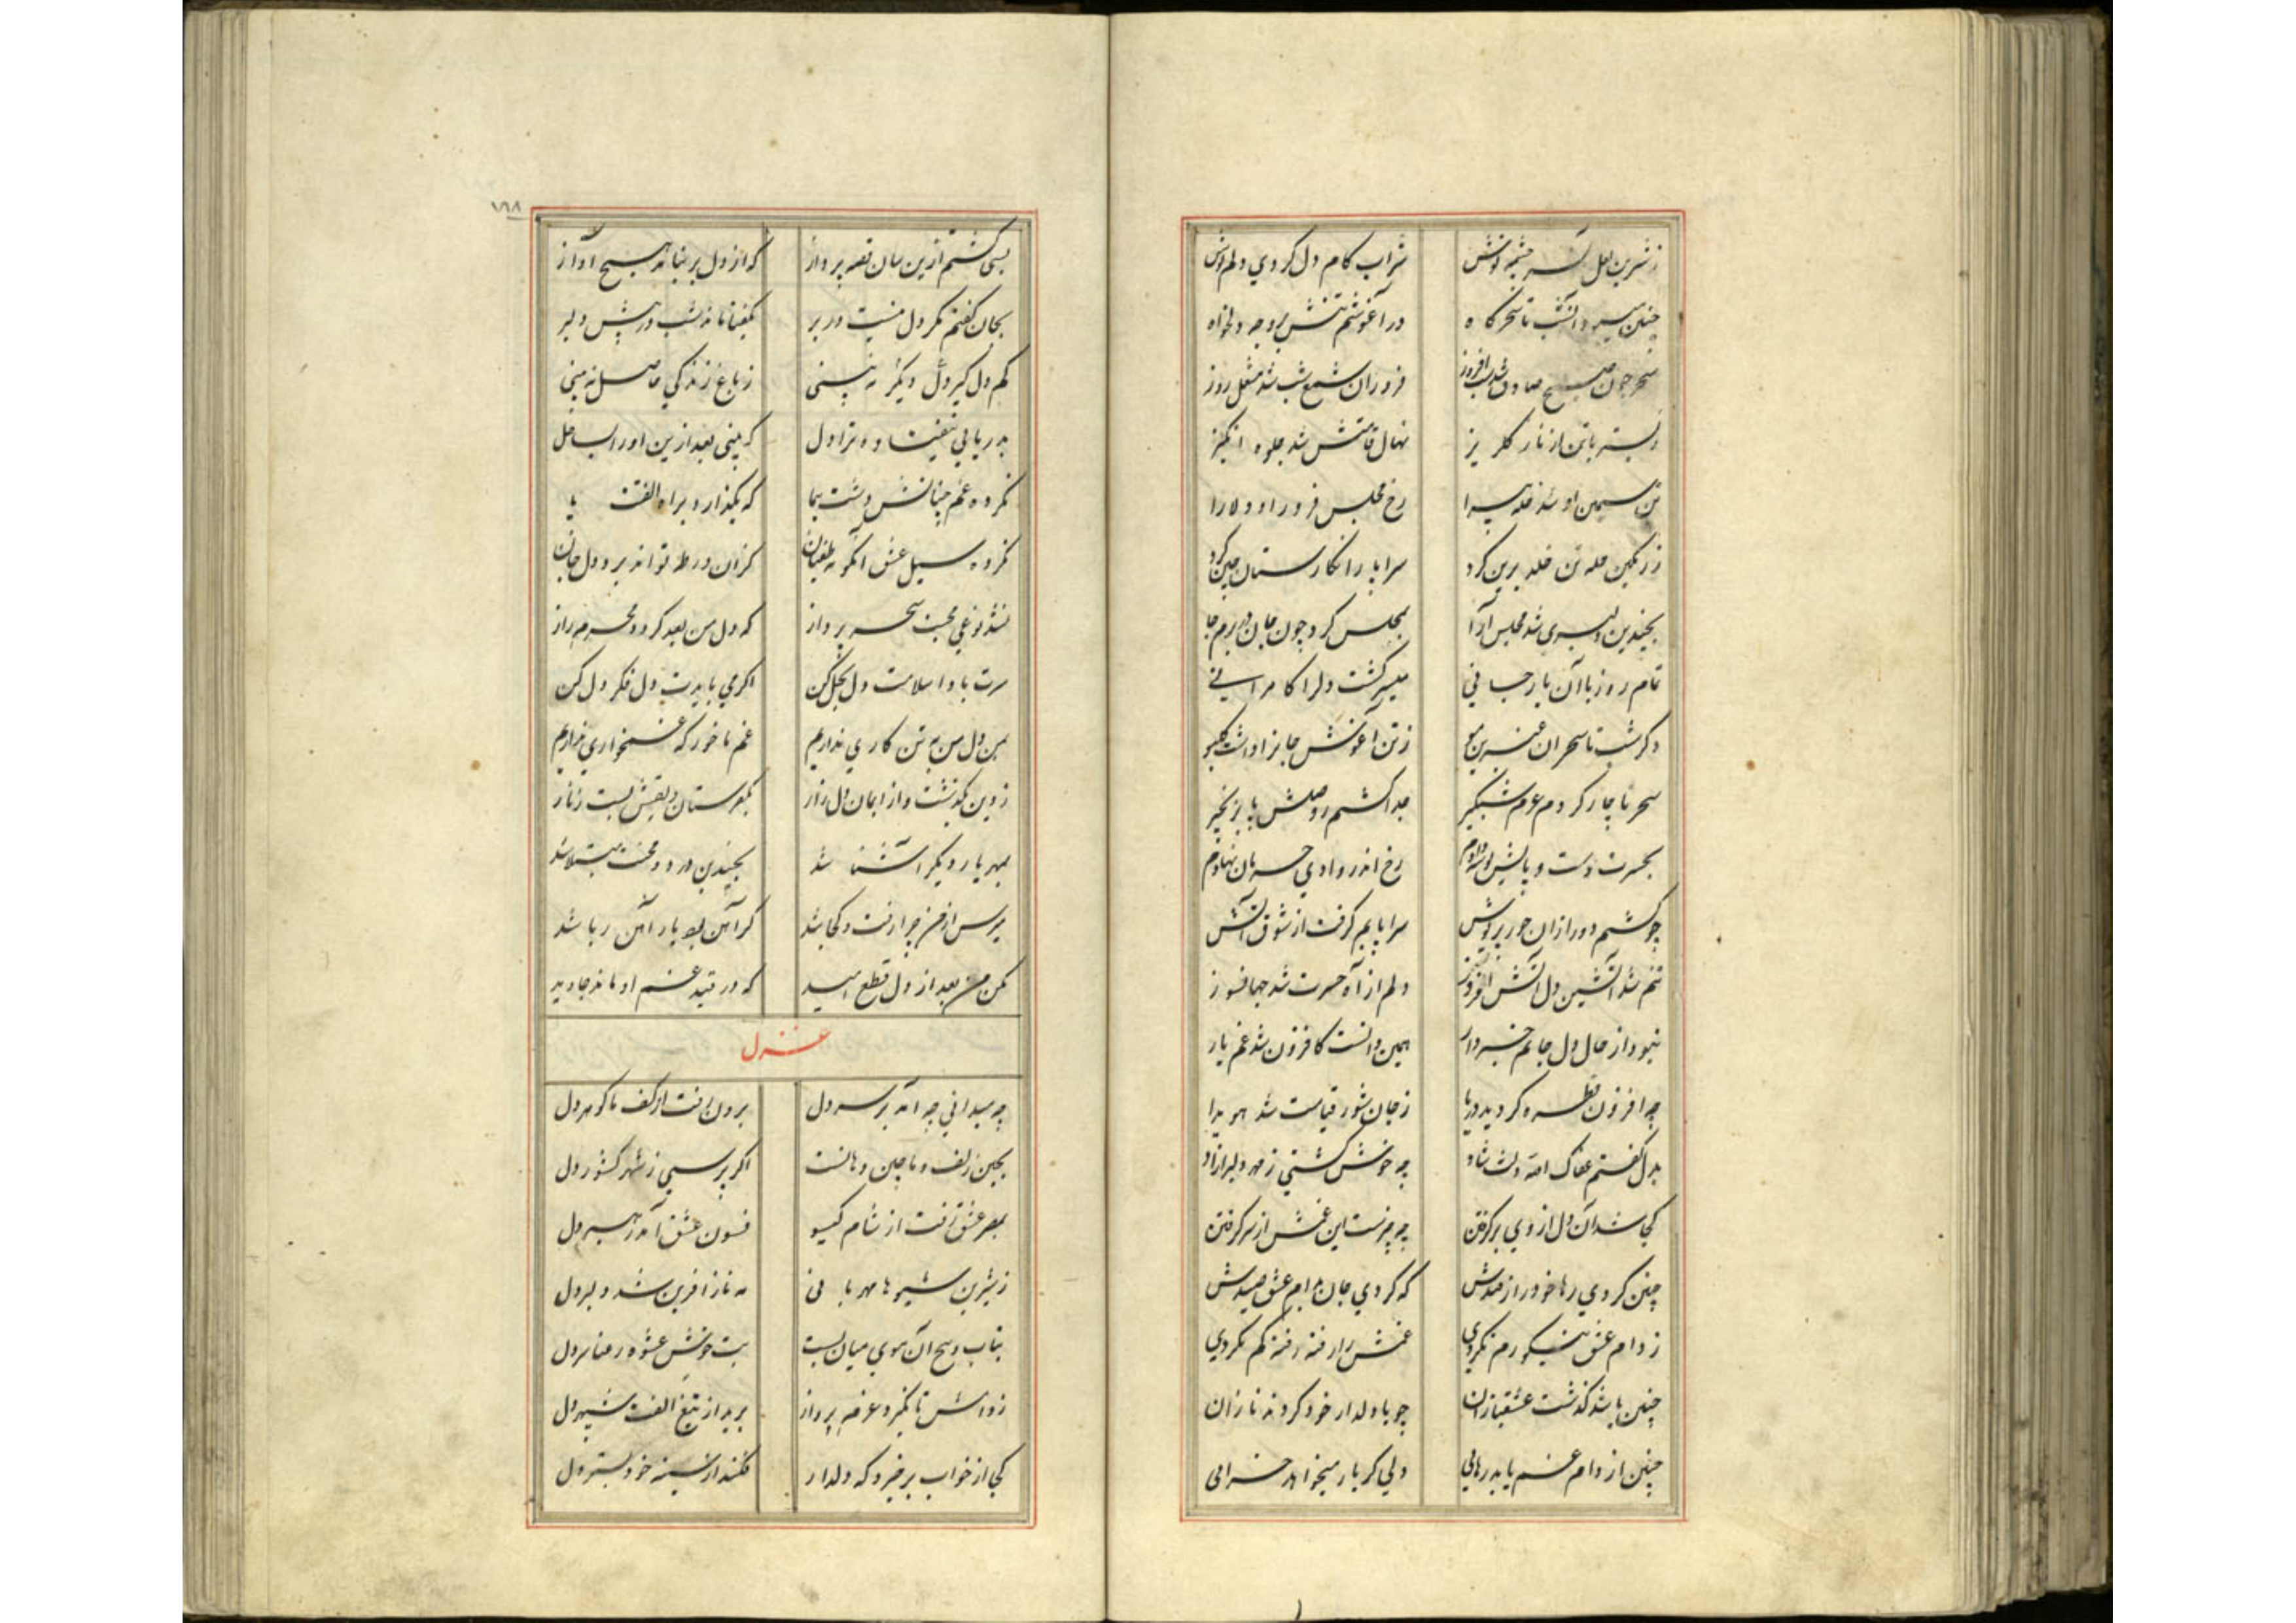 ز شیرین لعل آن سرچشمه نوش شراب کام دل کردی دلم نوش
چنین میبود انشب تا سحرکاه در آغوشم تنش بر وجه دلخواه
سحر چون صبح صادق شد شب افروز فروزان شمع شب شد مشعل روز
ز بستر با تن از ناز کلریز نهال قامتش شد جلوه انکیز
تن سیمین او شد حله پیرا رخ مجلس فروز او دلارا
ز رنکین حله تن خلد برین کرد سراپا را نکارستان چین کرد
بچندین دلبری شد مجلس آرا بمجلس کرد چون جان در برم جا
تمام روز با آن یار جانی میسر کشت دلرا کامرانی
دکر شب تا سحر ان عنبرین مو ز تن آغوش جانرا داشت
سحر ناچار کردم عزم شبکیر جدا کشتم ز وصلش پا بزنجیر
بحسرت دست و پایش بوسه دادم رخ اندر وادی حرمان نهادم
چو کشتم دور ازان حور پریوش سراپایم کرفت از شوق آتش
تنم شد آتشین دل آتش افروز دلم از آه حسرت شد جهانسوز
نبود از حال دل جانم خبردار همین دانست کافزون شد غم یار
چه افزون قطره کردید دریا ز جان شور قیامت شد هویدا
بدل کفتم عفاک الله دلت شاد چه خوش کشتی ز مهر دلبر ازاد
کجا شد آن دل از وی برکرفتن چه چیزست این غمش از سر کرفتن
چنین کردی رها خود را ز قیدش که کردی جان بدام عشق صیدش
ز دام عشق نیکو رم نکردی غمش را رفته رفته کم نکردی
چنین باشد کذشت عشقبازان چو با دلدار خود کردند نازان
چنین از دام غم یابد رهایی دلی کز یار میخواهد
۱۶۸
بسی کشتم ازین سان نغمه پرداز که از دل برنیامد هیچ آواز
بجان کفتم مکر دل نیست در بر بکفتا ماند شب در پیش دلبر
کم دل کیر دل دیکر نه بینی ز باغ زندکی حاصل نه بینی
بدریایی نیفتاده ترا دل که بینی بعد ازین او را بساحل
نکرده غم چنانش دشت پیما که بکذارد براه الفت پا
نکرده سیل عشق آنکونه طغیان کزان ورطه تواند برد دل جان
نشد نوعی محبت سحر پرداز که دل من بعد کردد محرم راز
سرت بادا سلامت دل بحل کن اکر می بایدت دل فکر دل کن
من دل من به تن کاری ندارم غم ما خور که غمخواری ندارم
ز دین بکذشت و از ایمان دل زار بکفرستان زلفش بست زنار
بمهر یار دیکر آشنا شد بچندین درد و محنت مبتلا شد
مپرس از من چرا رفت و کجا شد کز آهن بود یار آهن ربا شد
مکن من بعد از دل قطع امید که در قید غم او ماند جاوید
غزل
چه میدانی چه آمد بر سر دل برون رفت از کف ما کوهر دل
بچین زلف و ماچین دهانست اکر پرسی ز شهر کشور دل
بمصر عشق رفت از شام کیسو فسون عشق آمد رهبر دل
ز شیرین شیوها مهربانی مه نازآفرین شد دلبر دل
بتاب و پیچ آن موی میان بست بت خوش عشوه رعنا بر دل
ز دامش تا نکردد عزم پرواز برید از تیغ الفت شهپر دل
کجا از خواب برخیزد که دلدار فکند از سینه خود بستر دل